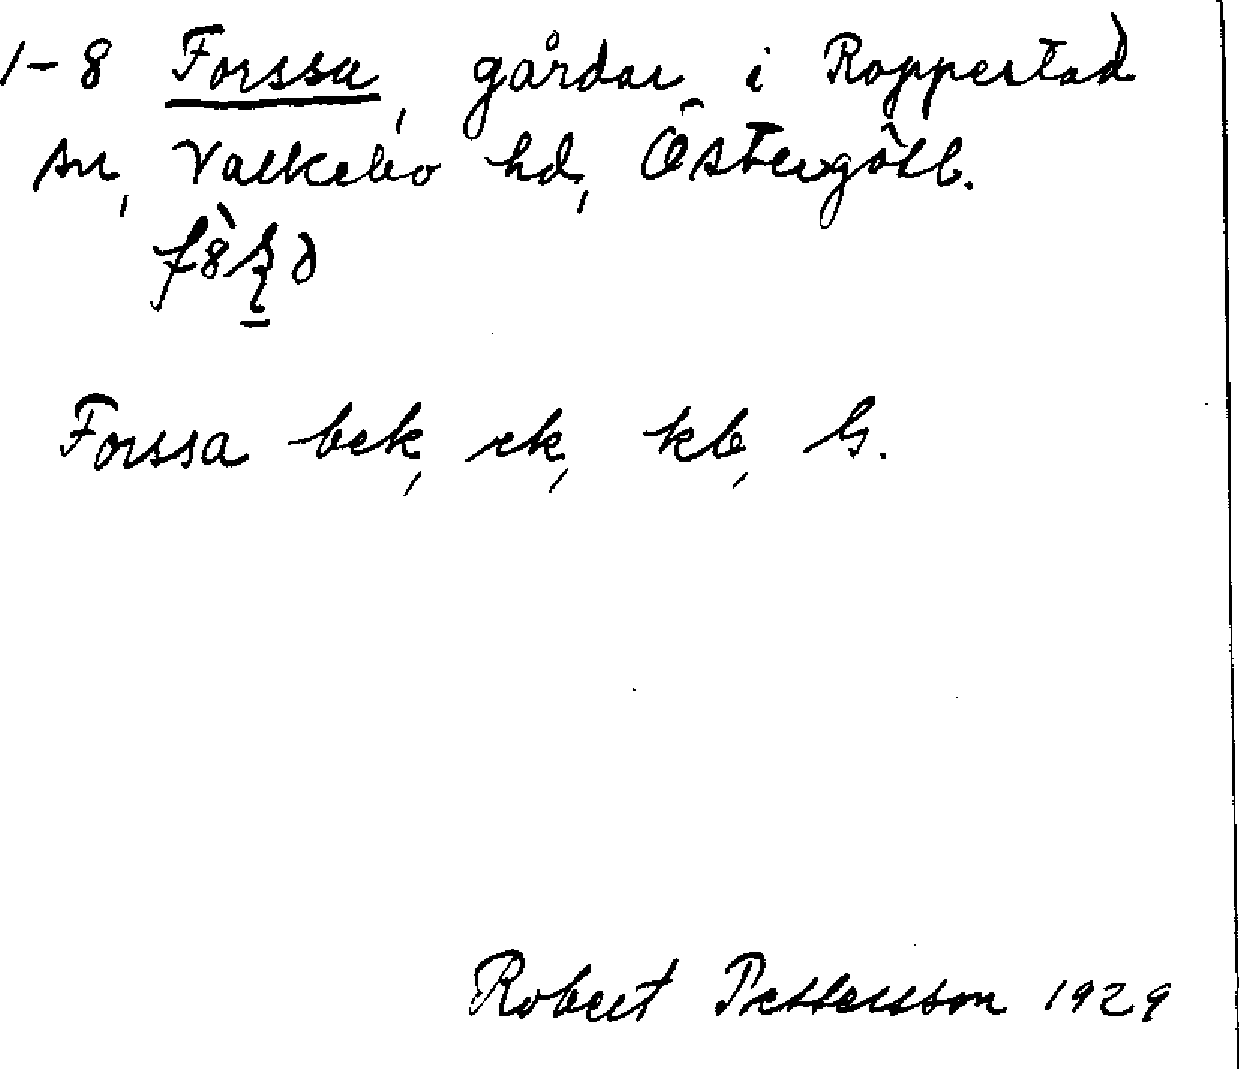 1-8 Forssa, gårdar i Rappestad
sn, Valkebo hd, Östergötl.
Forssa bek, ek, kb, G.
Robert Pettersson 1929